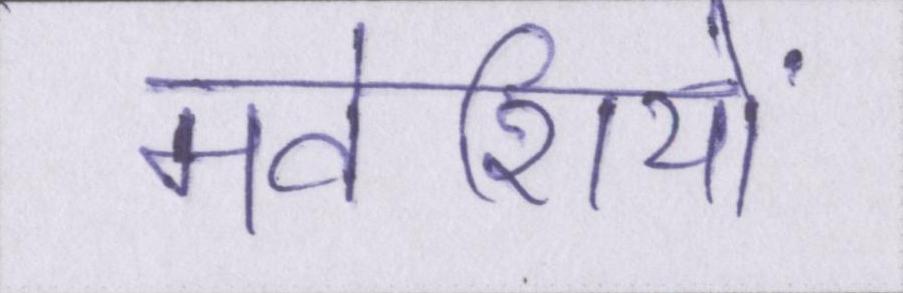 मवेशियों